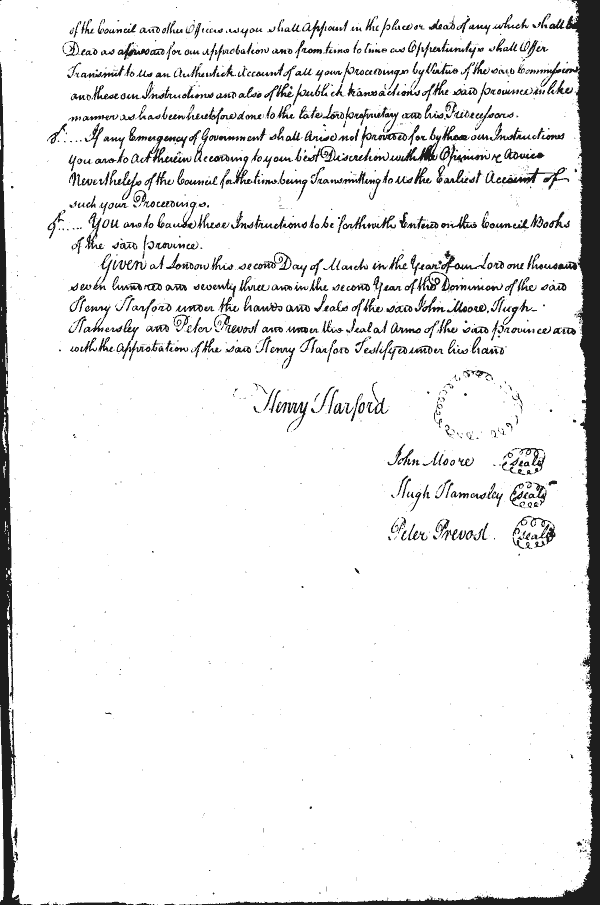 of the Council and other Officers as you shall Appoint in the place or stead of any which shall be
Dead as aforesaid for our approbation and from time to time as Opportunitys shall Offer
Transmit to us an Authentick Account of all your proceedings by Virtue of the said Commission
and these our Instructions and also of the publick transactions of the said province in like
manner as has been heretofore done to the late Lord proprietary and his Predecessors.
8th..... If any Emergency of Government shall Arise not provided for by these our Instructions
You are to Act therein According to your best Discretion with the Opinion & Advice
Nevertheless of the Council for the time being Transmitting to us the Earliest Account of
such your Proceedings.
9th..... You are to Cause these Instructions to be forthwith Entered on the Council Books
of the said province.
Given at London this second Day of March in the Year of our Lord one thousand
seven hundred and seventy three and in the second Year of the Dominion of the said
Henry Harford under the hands and Seals of the said John Moore, Hugh
Hamersley and Peter Prevost and under the Seal at Arms of the said province and
with the Approbation of the said Henry Harford Testifyed under his hand
Henry Harford
John Moore seal
Hugh Hamersley seal
Peter Prevost. seal